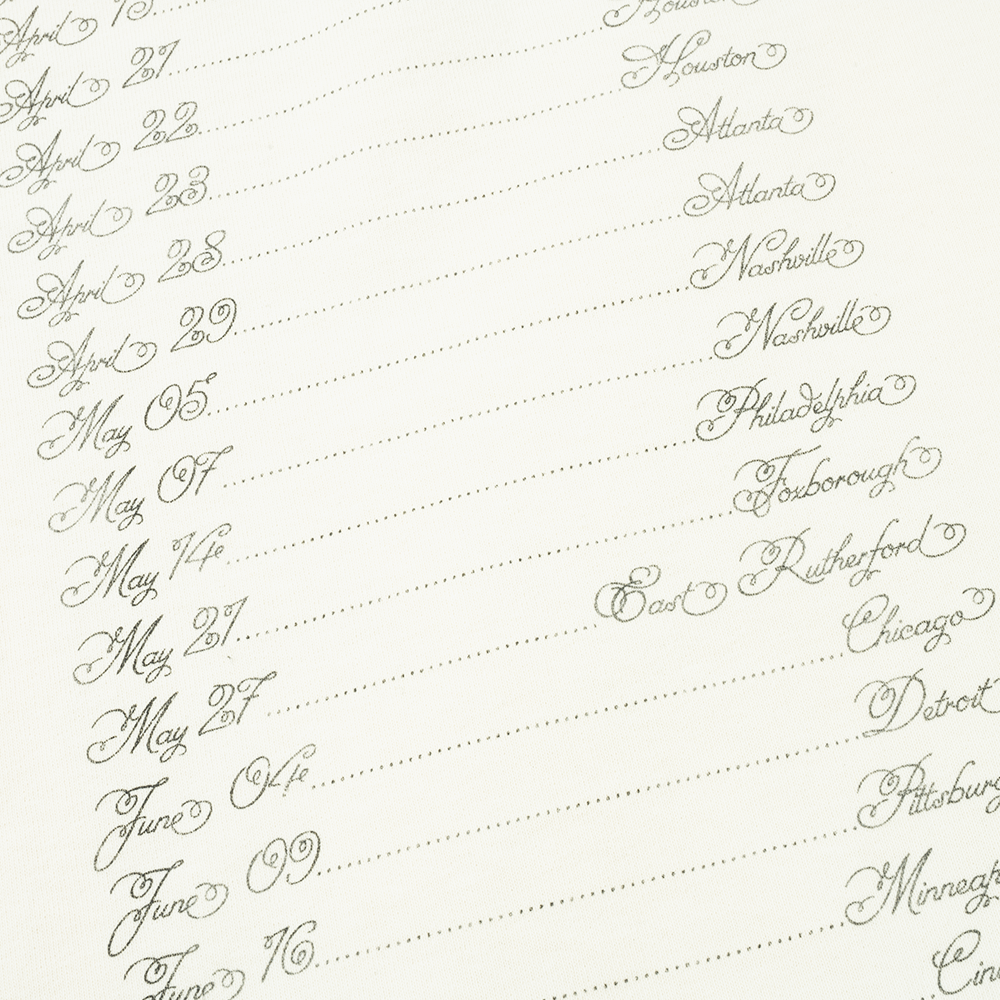 April
April 21
April 22 Houston
April 23 Houston
April 28 Atlanta
April 29 Atlanta
May 05 Nashville
May 07 Nashville
May 14 Philadelphia
May 21 Foxborough
May 27 East Rutherford
June 04 Chicago
June 09 Detroit
June 16 Pittsburg
Minneap
Cin